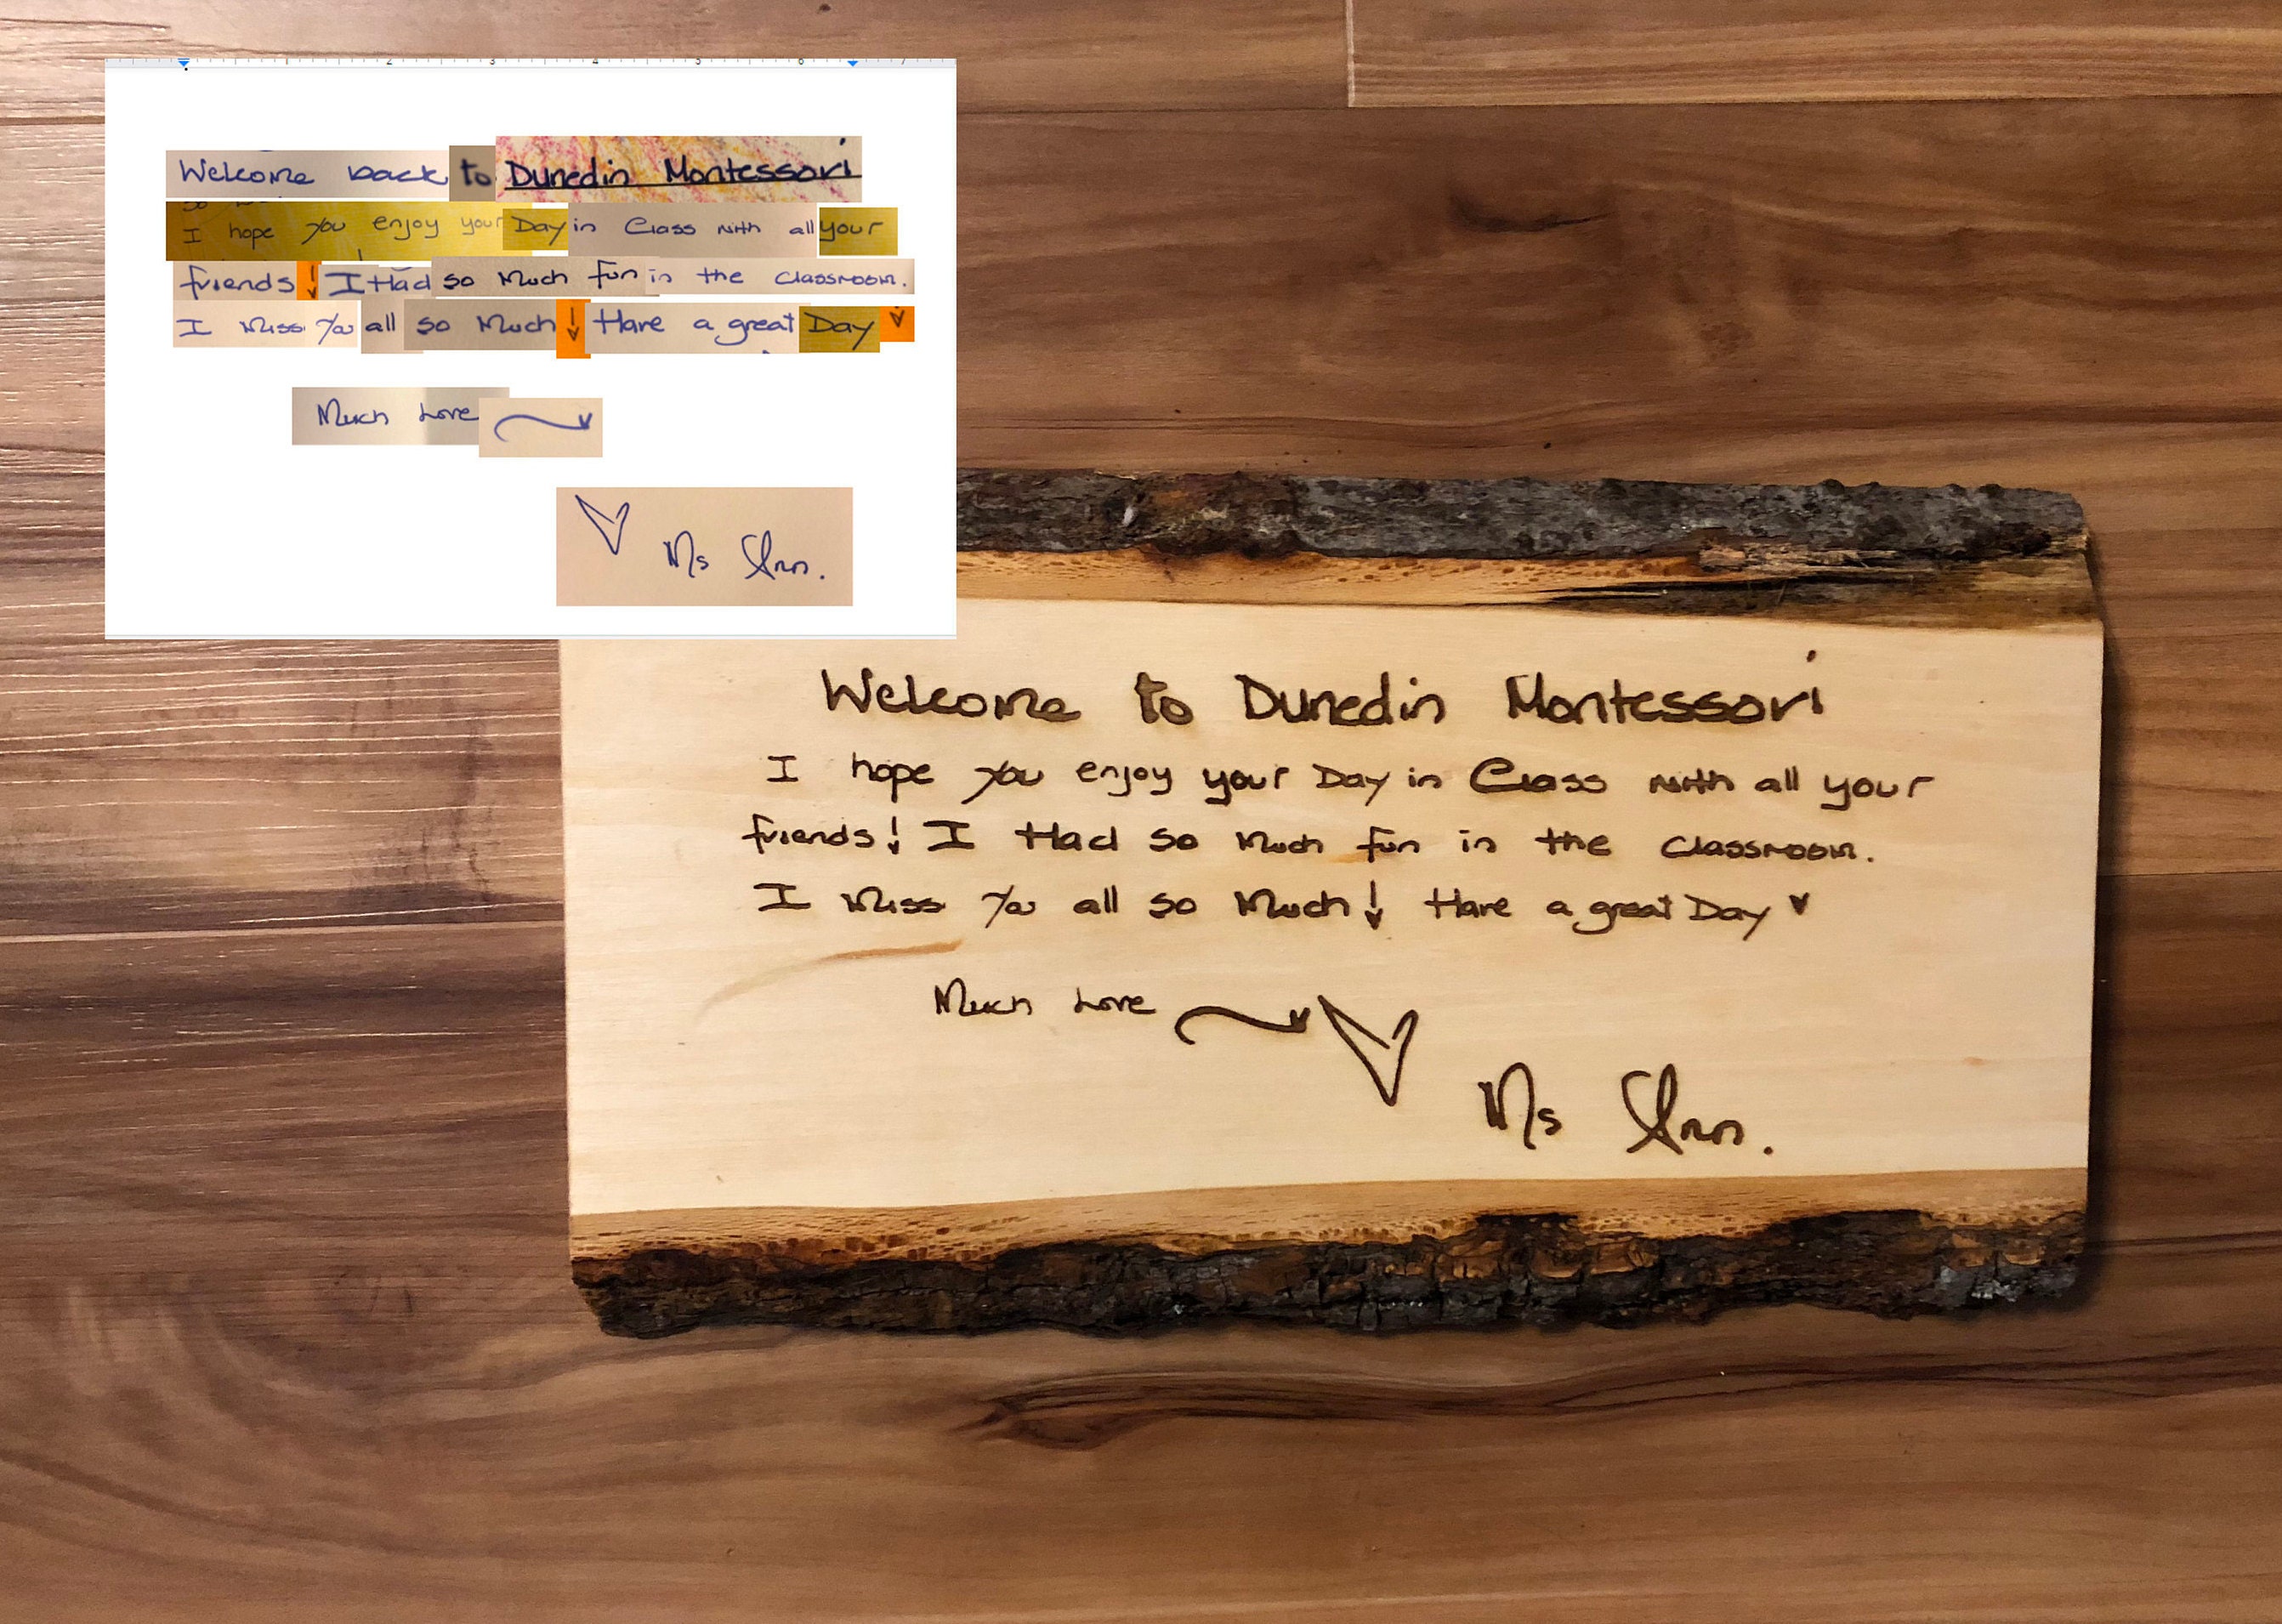 1 2 3 4 5 6 7
Welcome back to Dunedin Montessori
I hope you enjoy your Day in Class with all your
friends! I Had so Much fun in the Classroom.
I Miss You all so Much! Have a great Day
Much Love
Ms Ann.
Welcome to Dunedin Montessori
I hope you enjoy your Day in Class with all your
friends! I Had so Much fun in the Classroom.
I Miss You all so Much! Have a great Day
Much Love
Ms Ann.